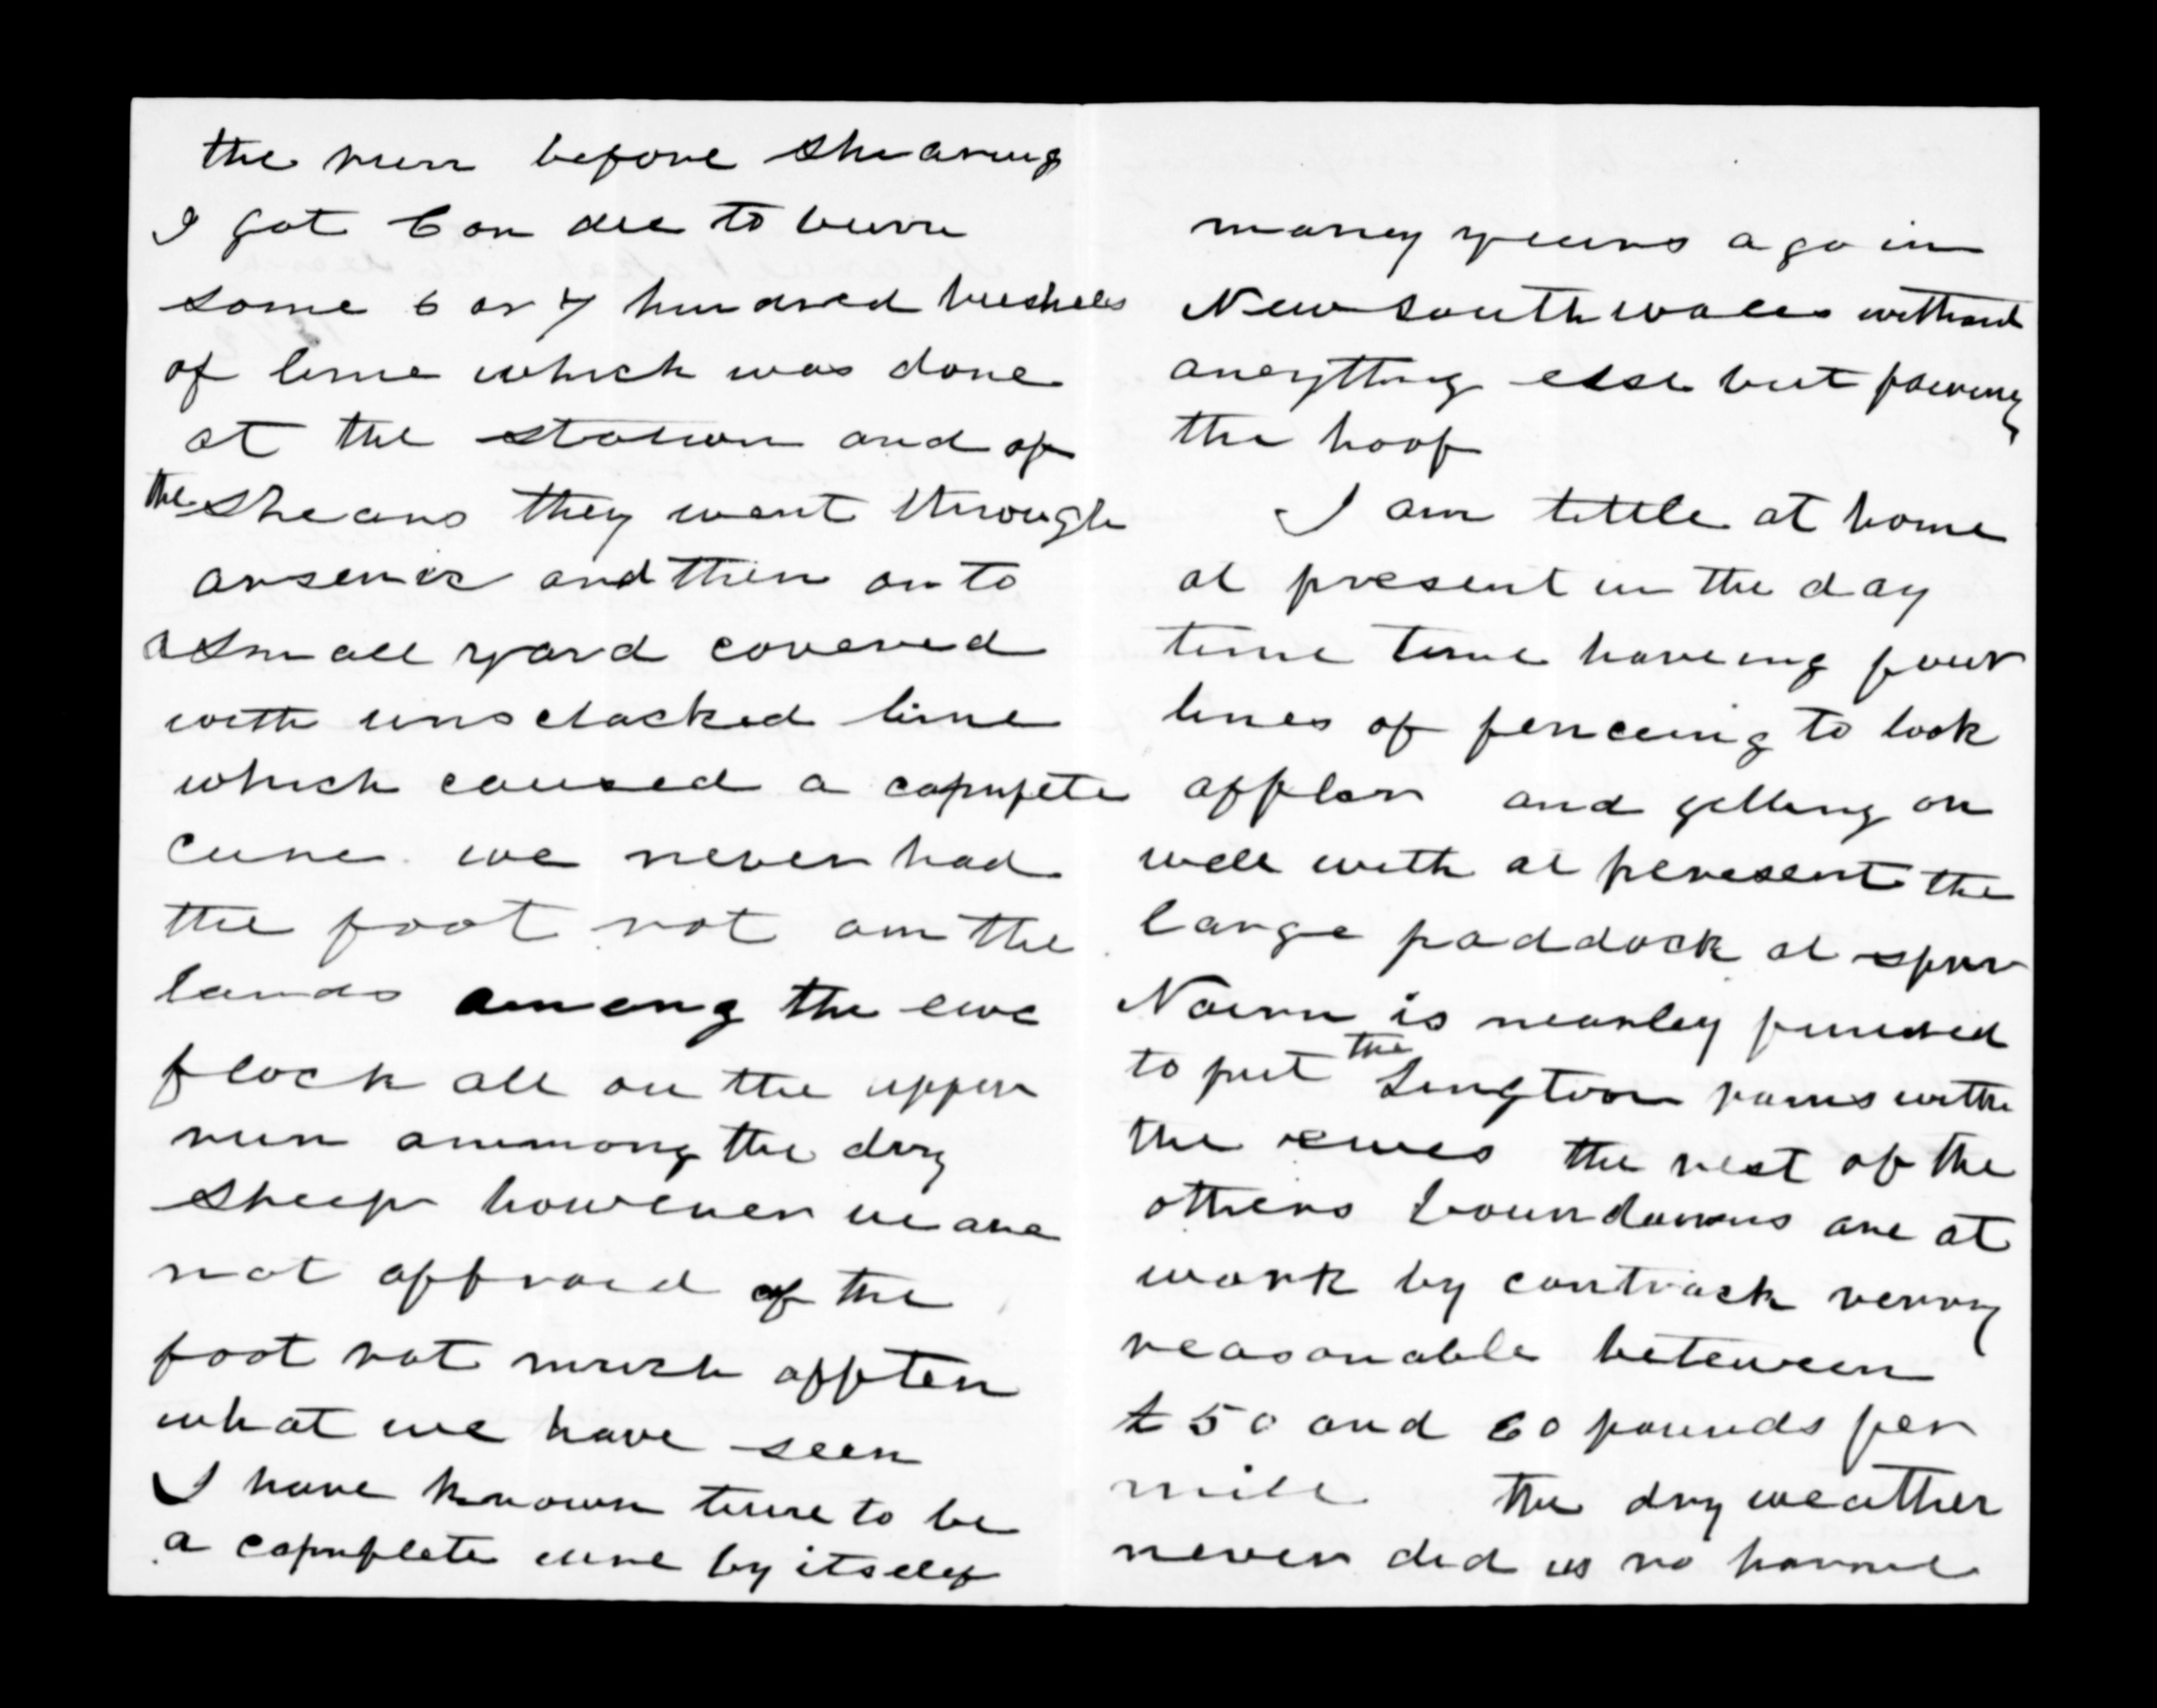 the run before shearing
I got Con dee to burn
some 6 or 7 hundred bushels
of lime which was done
at the station and of
the shears they went through
arsenic and then on to
a small yard covered
with unsclacked lime
which caused a copmpete
cure. we never had
the foot rot on the
lands among the ewe
flock all on the upper
run ammong the dry
sheep however we are
not affraid of the
foot rot much affter
what we have seen
I have known time to be
a copmplete cure by itself
maney years ago in
New South wales without
aneything else but paring
the hoof
I am little at home
at present in the day
time time haveing four
lines of fenceing to look
affter and getting on
well with at peresent the
large paddock at spur
is nearley funised
to put the Lington rams with
the ewes the rest of the
others boundarys are at
work by contrack verry
reasonable beteween
£50 and 60 pounds per
mile the dry weather
never did us no harme